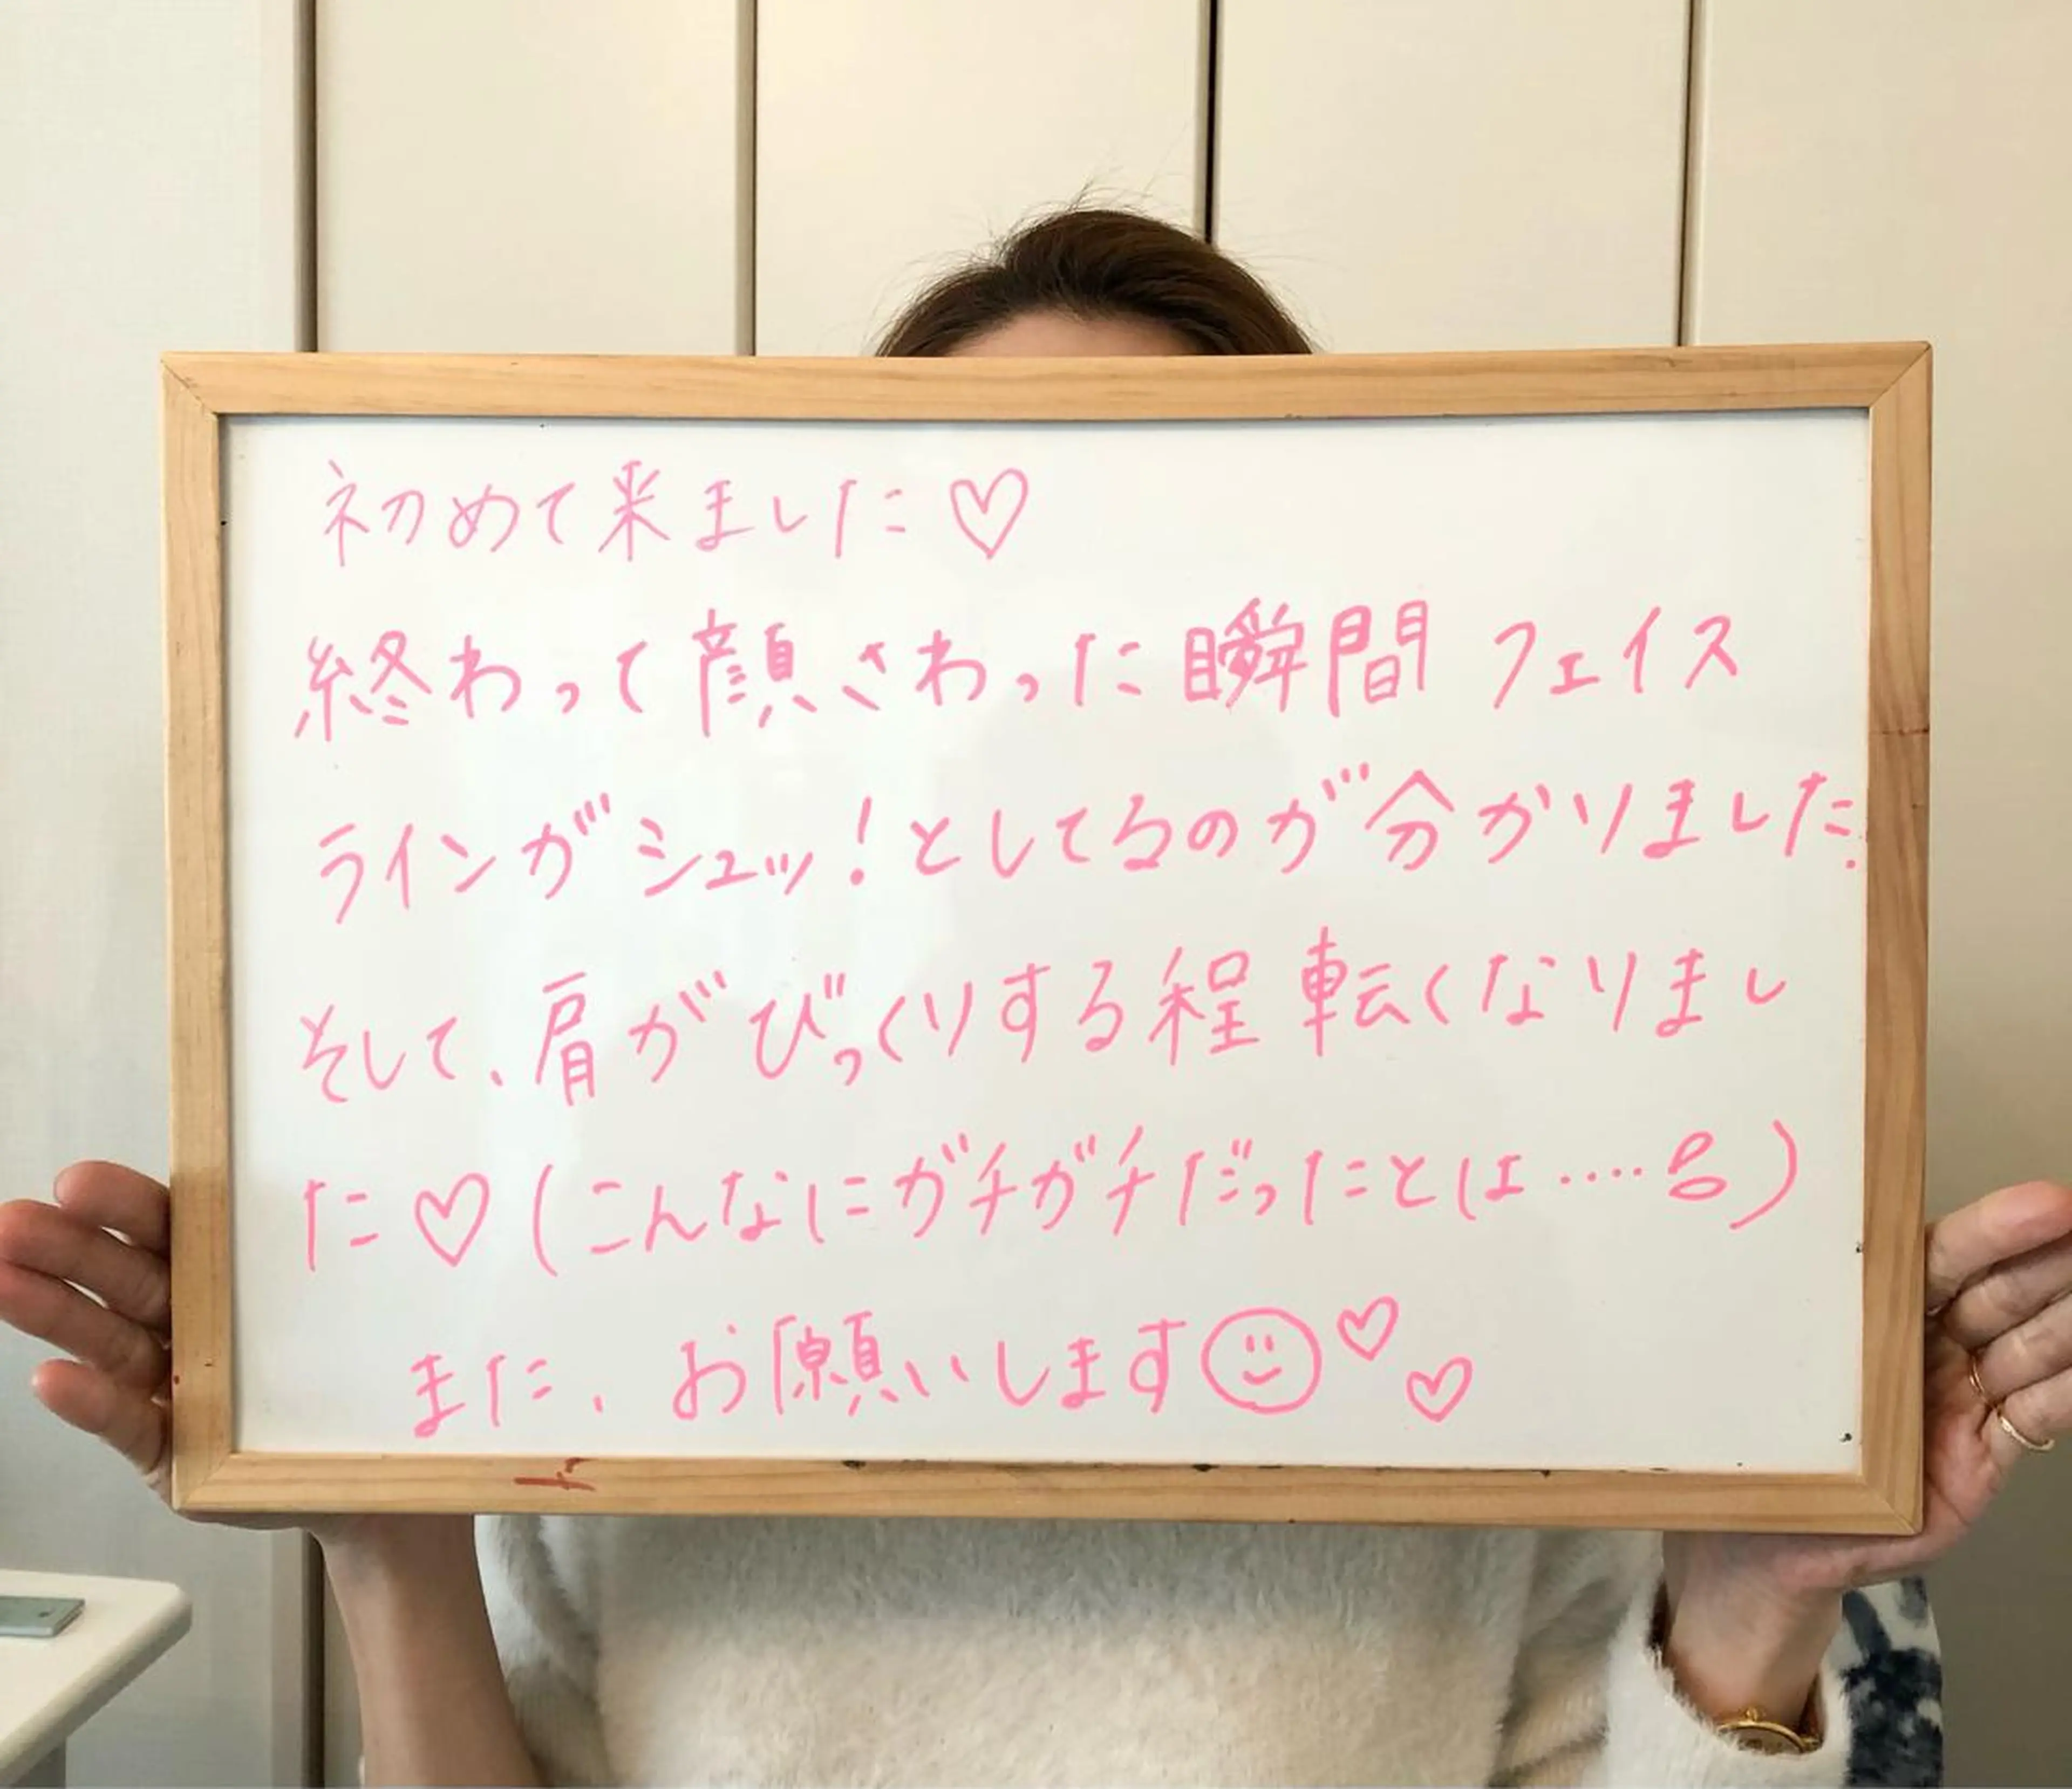 初めて来ました♡
終わって顔さわった瞬間 フェイス
ラインがシュッ!としてるのが分かりました.
そして、肩がびっくりする程 転くなりまし
た♡(こんなにガチガチだったとは....)
また、お願いします☺♡♡